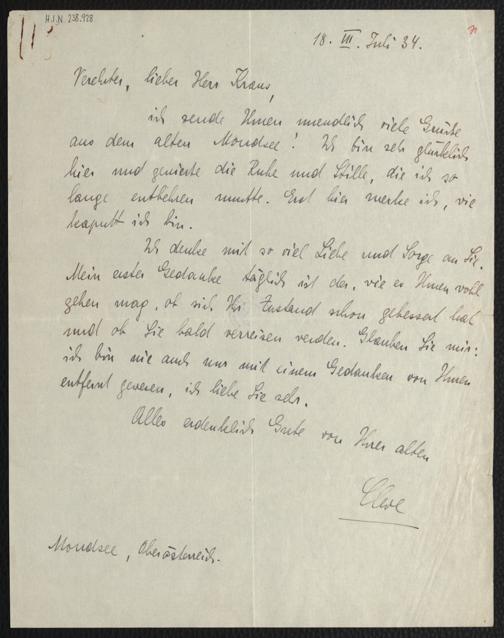 H.I.N. 238.928
18. III. Juli 34.
Verehrter, lieber Herr Kraus,
ich sende Ihnen unendlich viele Grüße
aus dem alten Mondsee! Ich bin sehr glücklich
hier und genieße die Ruhe und Stille, die ich so
lange entbehren musste. Erst hier merke ich, wie
kaputt ich bin.
Ich denke mit so viel Liebe und Sorge an Sie.
Mein erster Gedanke täglich ist der, wie es Ihnen wohl
gehen mag, ob sich Ihr Zustand schon gebessert hat
und ob Sie bald verreisen werden. Glauben Sie mir:
ich bin nie auch nur mit einem Gedanken von Ihnen
entfernt gewesen, ich liebe Sie sehr.
Alles erdenklich Gute von Ihrer alten
Mondsee, Oberösterreich.